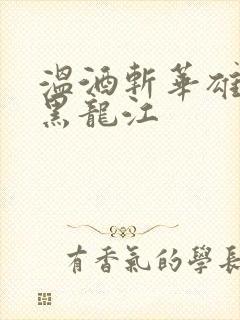 溫酒斬華雄
黑龍江
有香氣的學長